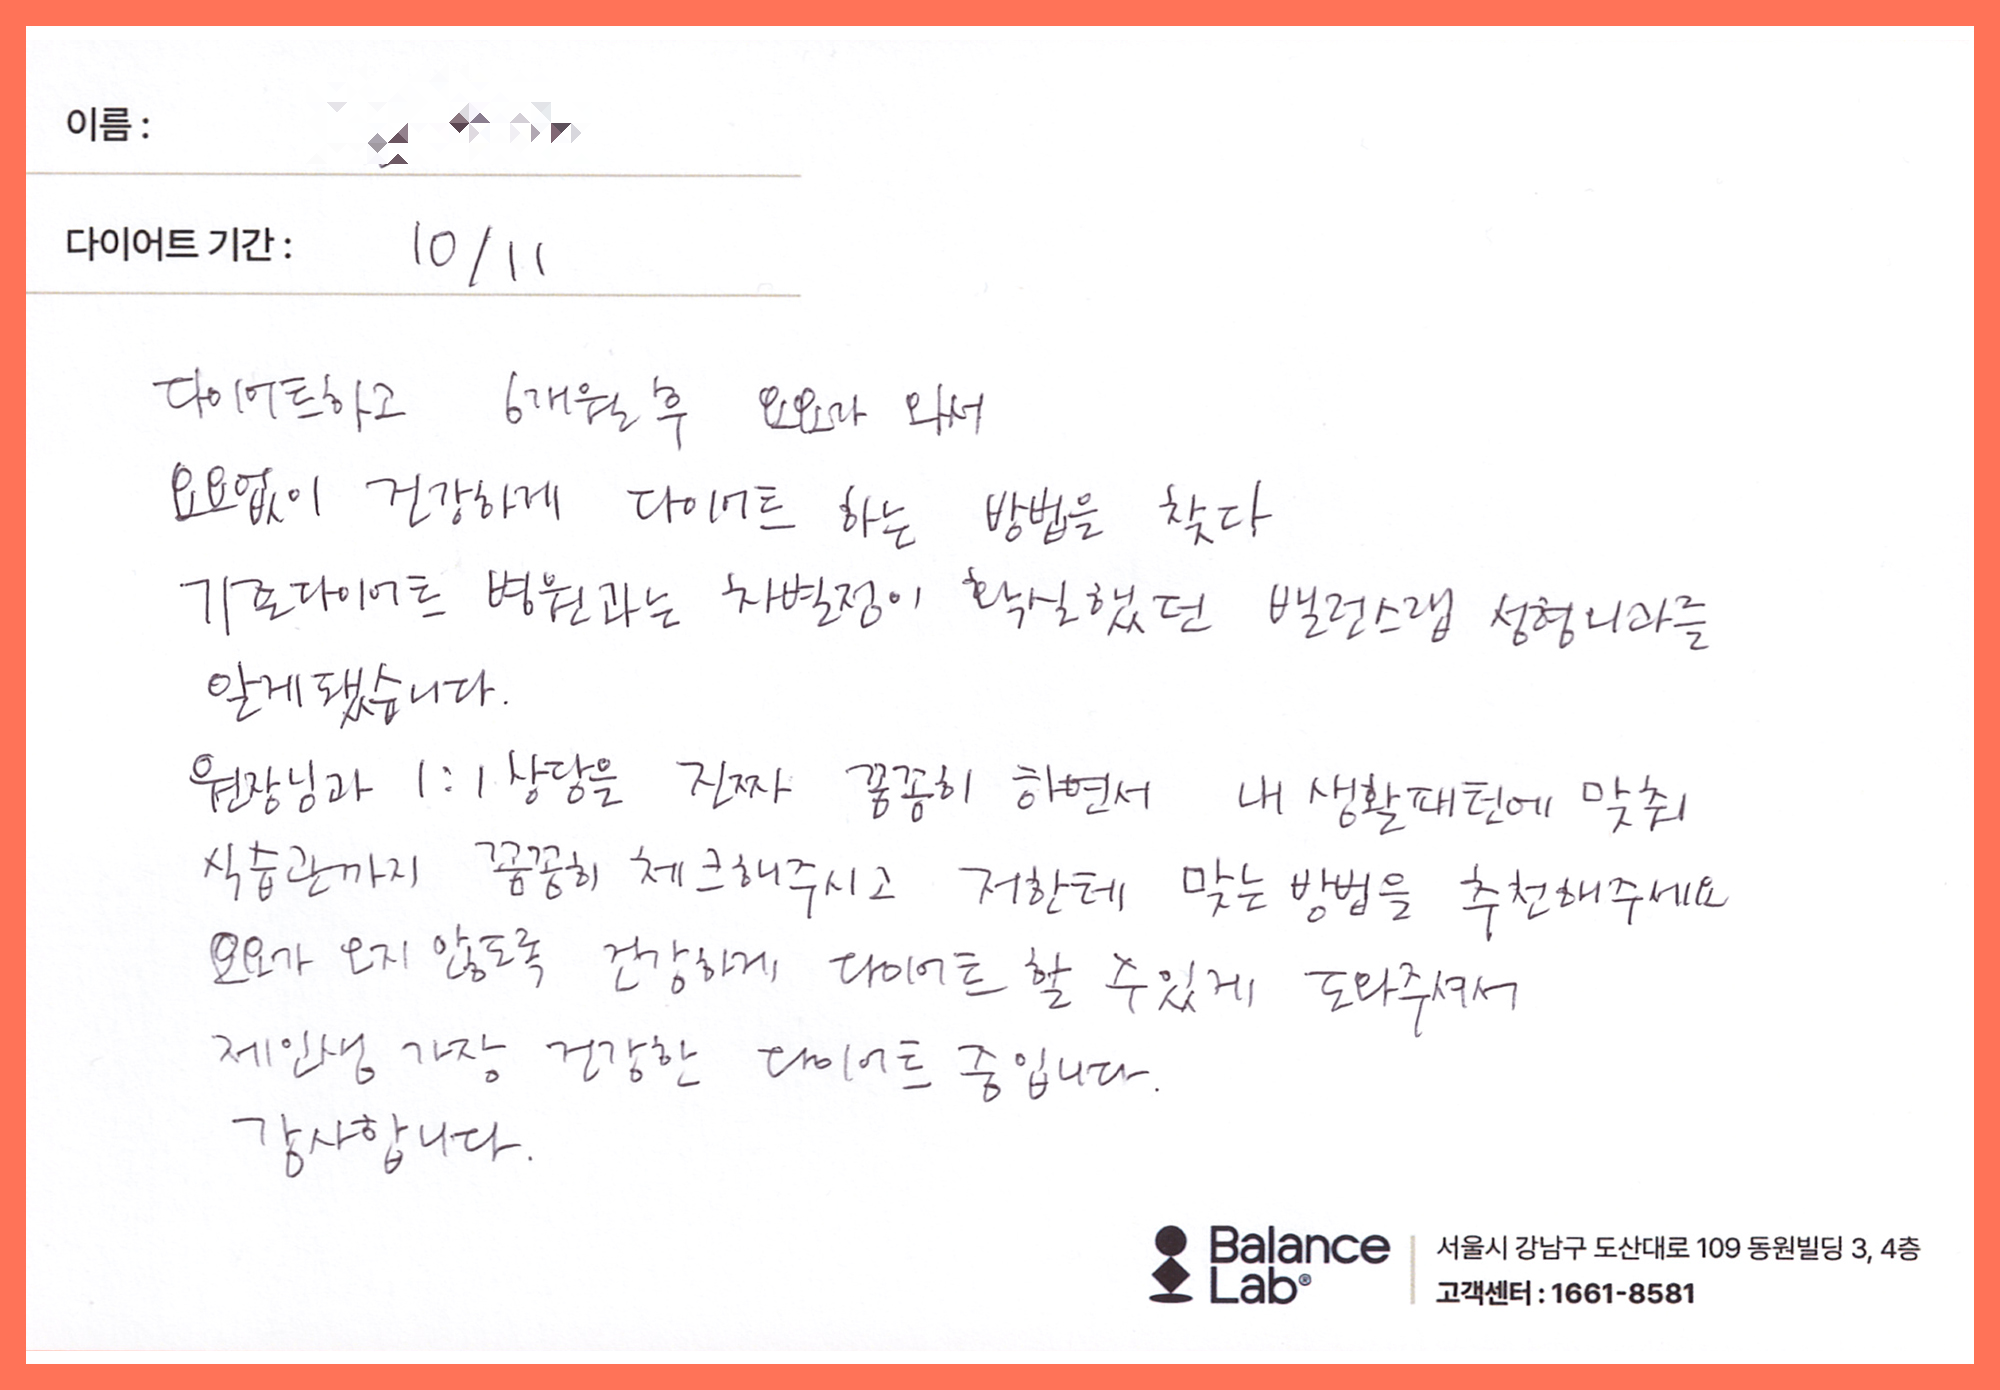 이름 :
다이어트 기간 : 10/11
다이어트하고 6개월 후 요요가 와서
요요없이 건강하게 다이어트 하는 방법을 찾다
기존다이어트 병원과는 차별점이 확실했던 밸런스랩 성형외과를
알게됐습니다.
원장님과 1:1 상담을 진짜 꼼꼼히 하면서 내 생활패턴에 맞춰
식습관까지 꼼꼼히 체크해주시고 저한테 맞는 방법을 추천해주세요
요요가 오지 않도록 건강하게 다이어트 할 수있게 도와주셔서
제인생 가장 건강한 다이어트 중입니다.
감사합니다.
Balance Lab®
서울시 강남구 도산대로 109 동원빌딩 3, 4층
고객센터 : 1661-8581